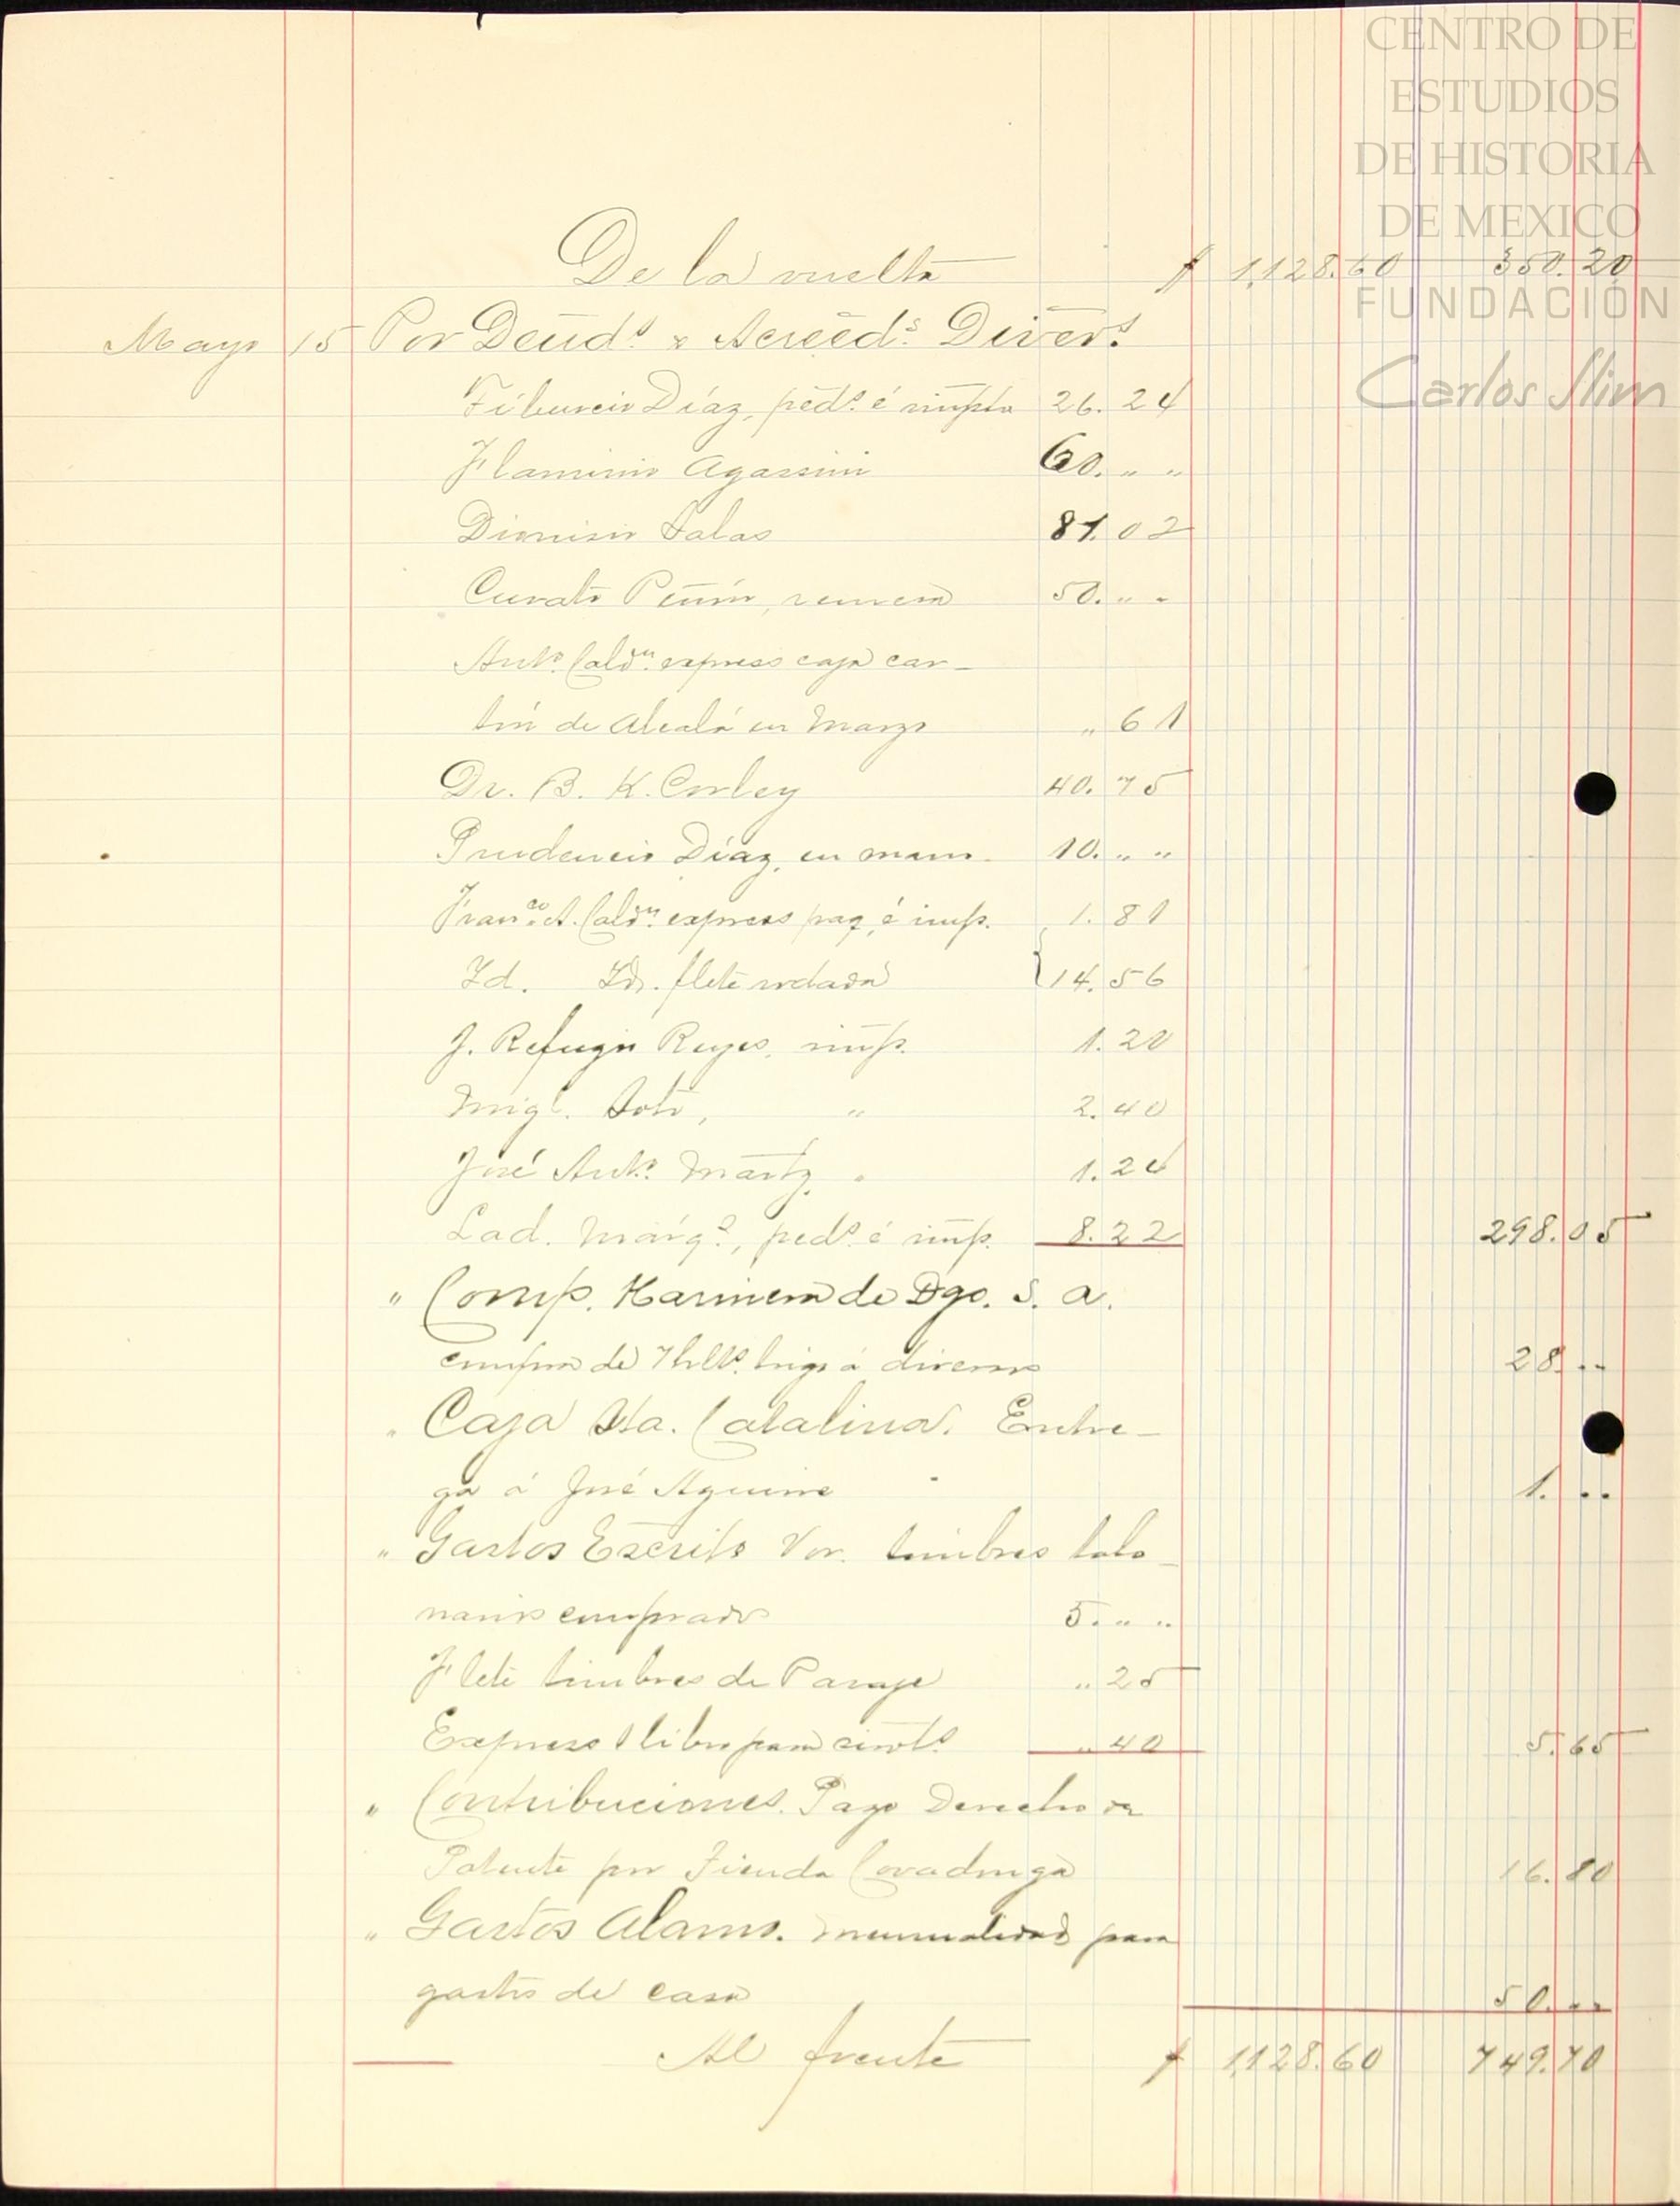 CENTRO DE
ESTUDIOS
DE HISTORIA
DE MEXICO
FUNDACIÓN
Carlos Slim
De la vuelta $ 1,128.60 350.20
Mayo 15 Por Deuds. & Acreeds. Divers.
Tiburcio Díaz, peds. é impto 26.24
Flaminio Agassini 60. „ „
Dionisio Salas 81.02
Curato Peñón, remesa 50. „ „
Anto. Caldn. express caja car-
tón de Alcalá en Marzo „ 61
Dr. B. K. Corley 40.75
Prudencio Díaz, en mano. 10. „ „
Franco. A. Caldn. express paq. é imp. 1.81
Id. Id. flete rodada 14.56
J. Refugio Reyes, imp. 1.20
Migl. Soto, „ 2.40
José Anto. Martz. „ 1.24
Lad. Márqz., peds. é imp. 8.22 298.05
„ Comp. Harinera de Dgo. S. A.
compra de 7 hlts. trigo á diversos 28. „
„ Caja Sta. Catalina. Entre-
ga á José Aguirre 1. „
„ Gastos Escrito Vor. timbres talo-
narios comprados 5. „ „
Flete timbres de Pasaje „ 25
Express 1 libro para „ 40 5.65
„ Contribuciones. Pago Derecho de
Patente por Tienda Covadonga 16.80
„ Gastos Alamo. mensualidad para
gastos de casa 50. „
Al frente $ 1,128.60 749.70